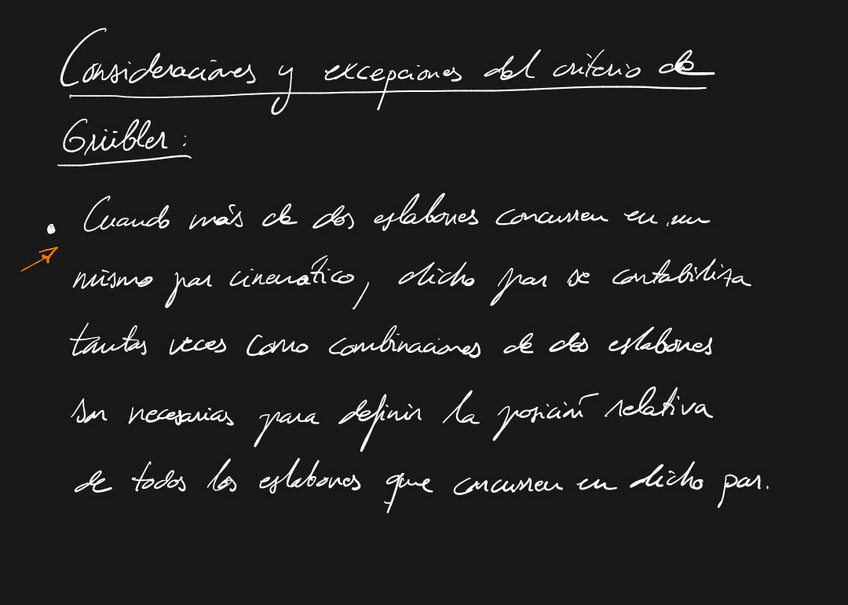 Consideraciones y excepciones del criterio de
Grübler:
• Cuando más de dos eslabones concurren en un
mismo par cinemático, dicho par se contabiliza
tantas veces como combinaciones de dos eslabones
son necesarias para definir la posición relativa
de todos los eslabones que concurren en dicho par.